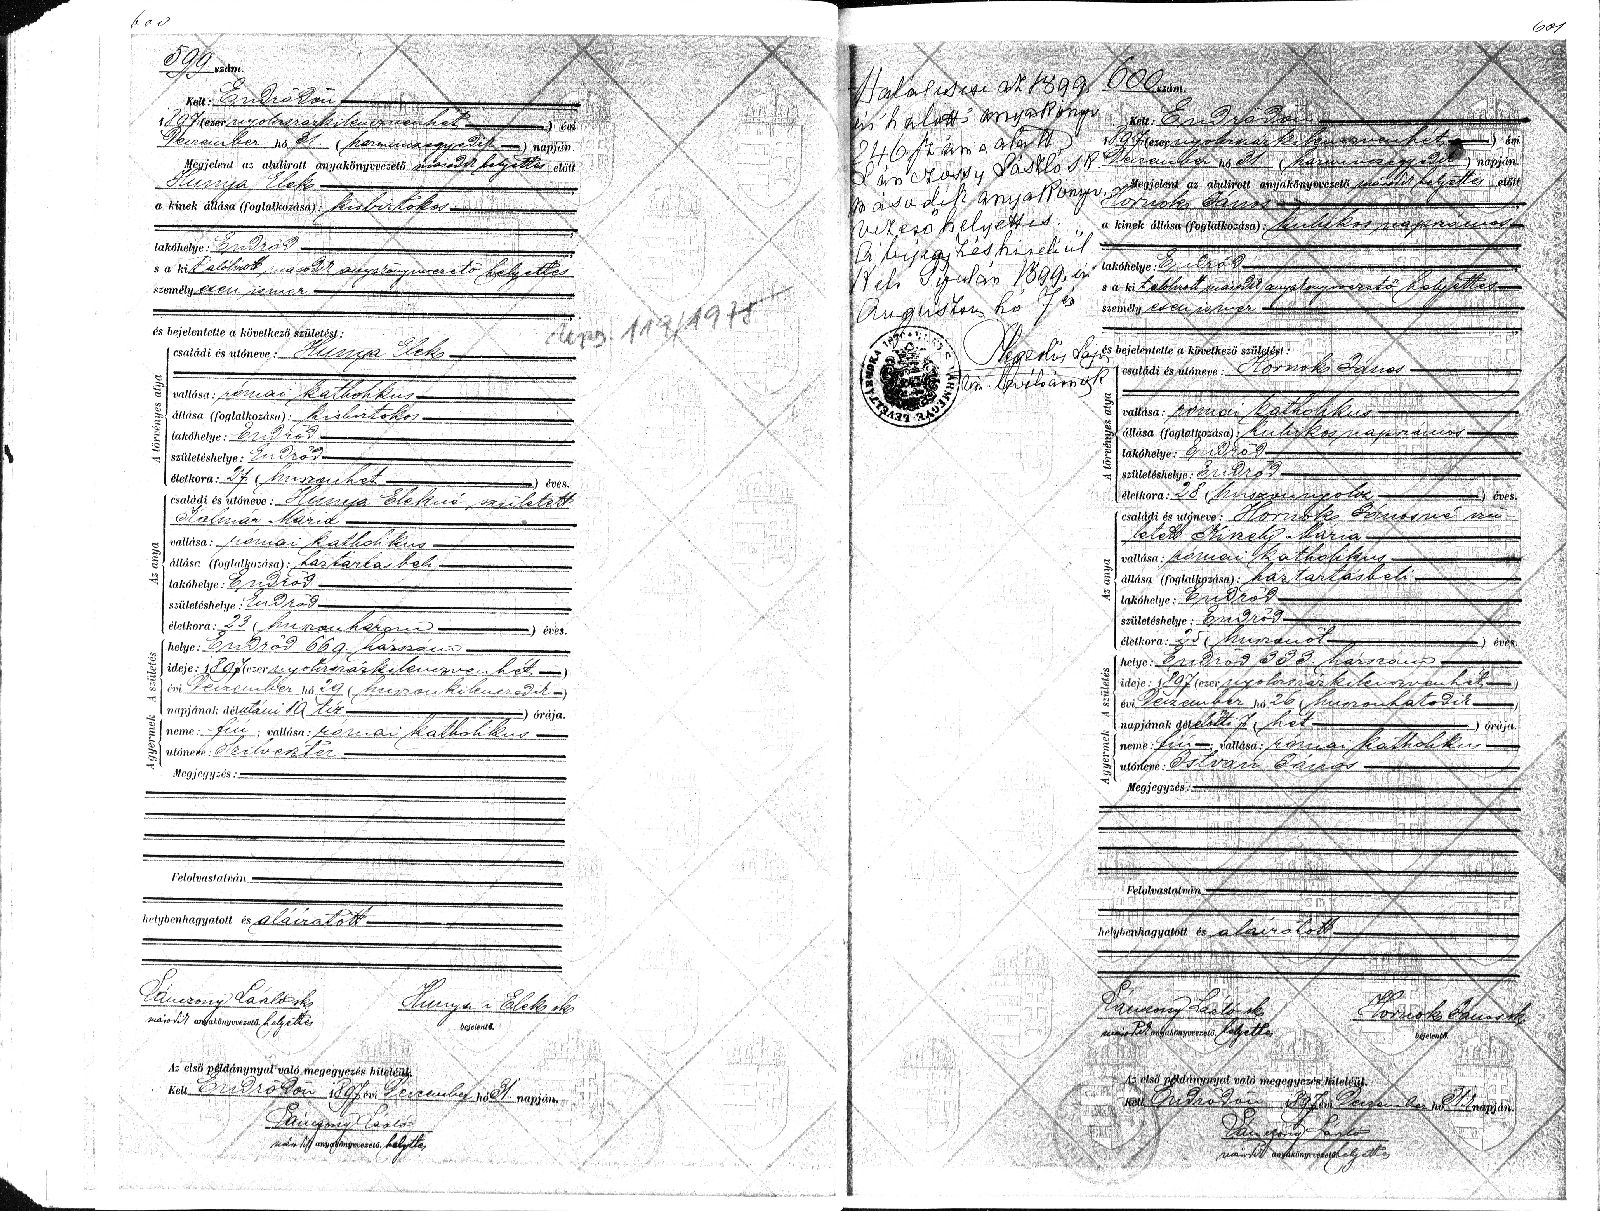 600
599 szám.
Kelt: Endrődön
1897 (ezernyolcszázkilencvenhét) évi
Deczember hó 31 (harminczegyedik) napján.
Megjelent az alulirott anyakönyvvezető második helyettes előtt
Hunya Elek
a kinek állása (foglalkozása): kisbirtokos
lakóhelye: Endrőd
s a kit alólirott második anyakönyvvezető helyettes
személyesen ismer
és bejelentette a következő születést:
A törvényes atya
családi és utóneve: Hunya Elek
vallása: római katholikus
állása (foglalkozása): kisbirtokos
lakóhelye: Endrőd
születéshelye: Endrőd
életkora: 27 (huszonhét) éves.
Az anya
családi és utóneve: Hunya Elekné, született
Kalmár Mária
vallása: római katholikus
állása (foglalkozása): háztartásbeli
lakóhelye: Endrőd
születéshelye: Endrőd
életkora: 23 (huszonhárom) éves.
A születés
helye: Endrőd 669 házszám
ideje: 1897 (ezernyolcszázkilencvenhét)
évi Deczember hó 29 (huszonkilenczedik)
napjának délutáni 10 tíz órája.
A gyermek
neme: fiú; vallása: római katholikus
utóneve: Szilveszter
Megjegyzés:
Felolvastatván
helybenhagyatott és aláíratott
Lánczony László sk
második anyakönyvvezető helyettes
Hunya Elek sk
bejelentő.
Az első példánynyal való megegyezés hiteléül.
Kelt Endrődön 1897 évi Deczember hó 31 napján.
Lánczony László
második anyakönyvvezető helyettes
119/1978
601
600 szám.
Kelt: Endrődön
1897 (ezernyolcszázkilencvenhét) évi
Deczember hó 31 (harminczegyedik) napján.
Megjelent az alulirott anyakönyvvezető második helyettes előtt
Hornok János
a kinek állása (foglalkozása): kubikos napszámos
lakóhelye: Endrőd
s a kit alólirott második anyakönyvvezető helyettes
személyesen ismer
és bejelentette a következő születést:
A törvényes atya
családi és utóneve: Hornok János
vallása: római katholikus
állása (foglalkozása): kubikos napszámos
lakóhelye: Endrőd
születéshelye: Endrőd
életkora: 28 (huszonnyolcz) éves.
Az anya
családi és utóneve: Hornok Jánosné szü-
letett Mária
vallása: római katholikus
állása (foglalkozása): háztartásbeli
lakóhelye: Endrőd
születéshelye: Endrőd
életkora: 25 (huszonöt) éves.
A születés
helye: Endrőd 333 házszám
ideje: 1897 (ezernyolcszázkilencvenhét)
évi Deczember hó 26 (huszonhatodik)
napjának délelőtti 7 (hét) órája.
A gyermek
neme: fiú; vallása: római katholikus
utóneve: István János
Megjegyzés:
Felolvastatván
helybenhagyatott és aláíratott
Lánczony László sk
második anyakönyvvezető helyettes
Hornok János sk
bejelentő.
Az első példánynyal való megegyezés hiteléül.
Kelt Endrődön 1897 évi Deczember hó 31 napján.
Lánczony László
második anyakönyvvezető helyettes
az 1899
halotti anyakönyv
246 szám alatt
Lánczony László sk.
második anyakönyv
vezető helyettes.
A bejegyzés hiteléül
Kelt Gyulán 1899 évi
Augusztus hó 7én
VÁRMEGYE LEVÉLTÁRNOKA